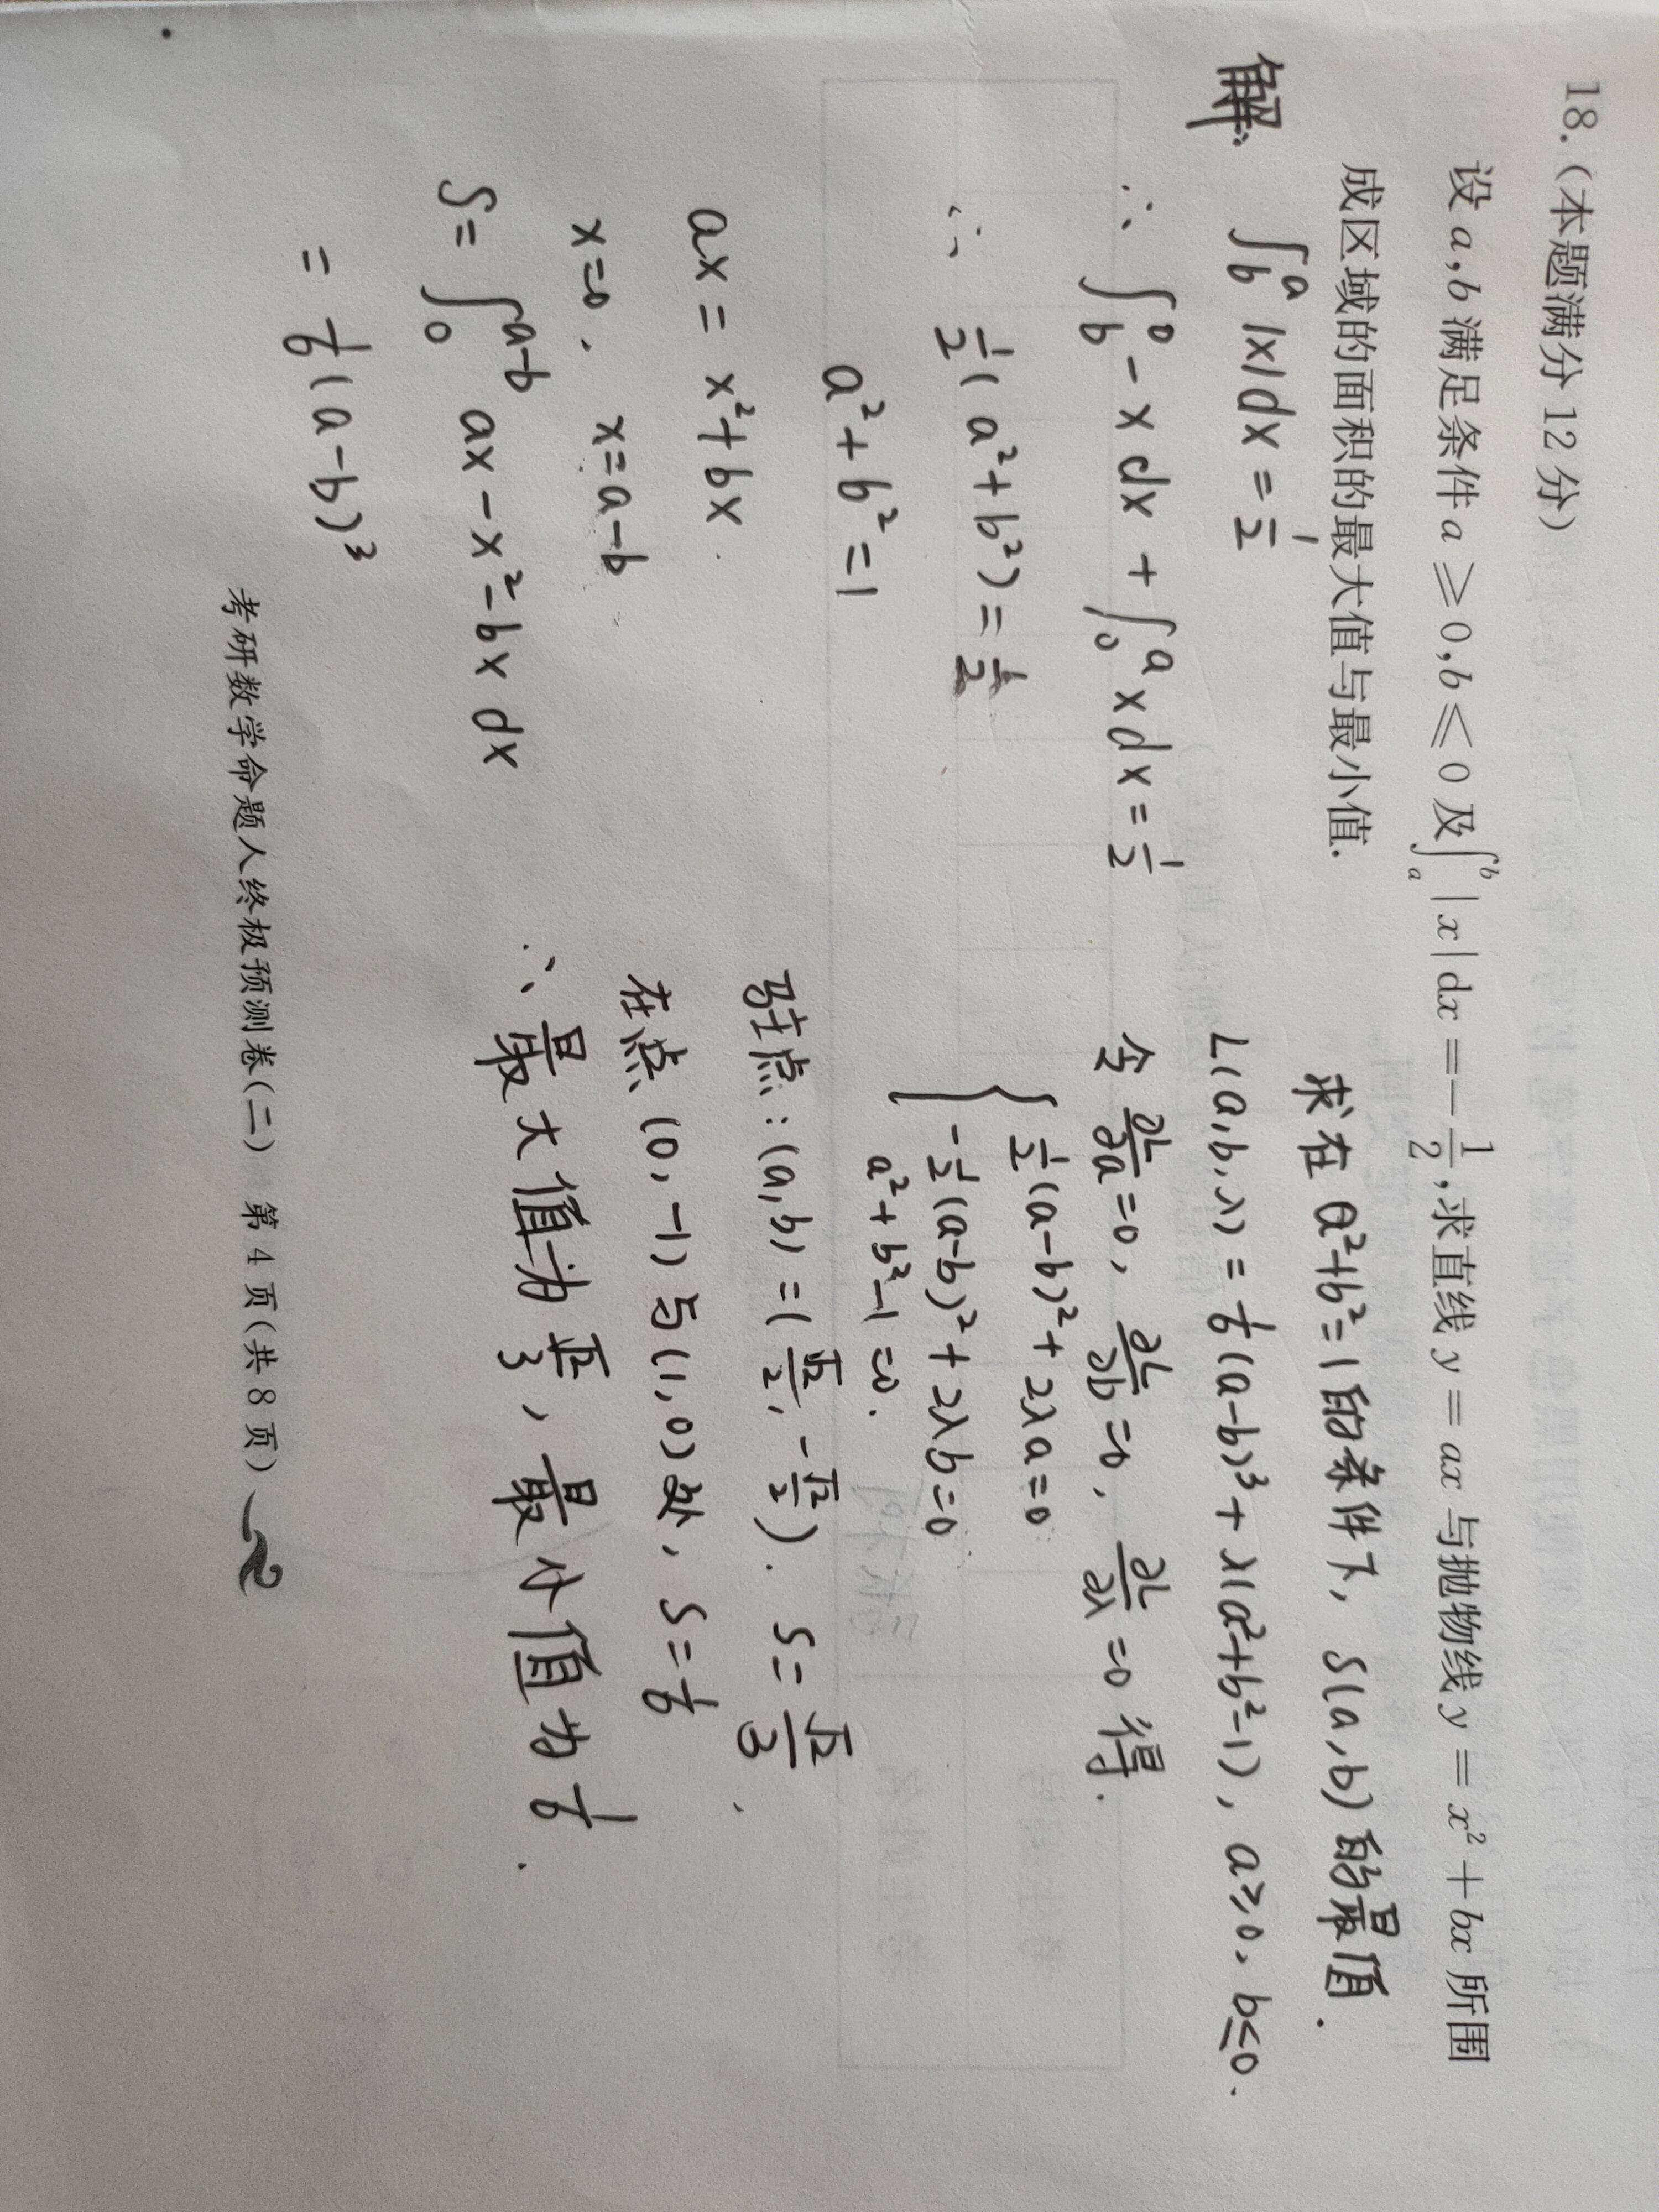 18.(本题满分12分)
设a,b满足条件a≥0,b≤0及∫_a^b|x|dx=-1/2,求直线y=ax与抛物线y=x²+bx所围
成区域的面积的最大值与最小值.
解: ∫_b^a |x|dx = 1/2
∴ ∫_b^0 -x dx + ∫_0^a x dx = 1/2
∴ 1/2(a²+b²) = 1/2
a²+b²=1
ax = x²+bx.
x=0, x=a-b
S= ∫_0^{a-b} ax-x²-bx dx
= 1/6(a-b)³
求在a²+b²=1的条件下, S(a,b)的最值.
L(a,b,λ) = 1/6(a-b)³ + λ(a²+b²-1), a≥0, b≤0.
令 ∂L/∂a=0, ∂L/∂b=0, ∂L/∂λ=0得.
{ 1/2(a-b)² + 2λa=0
-1/2(a-b)² + 2λb=0
a²+b²-1=0.
驻点:(a,b)=(√2/2, -√2/2). S=√2/3.
在点(0,-1)与(1,0)处, S=1/6
∴ 最大值为√2/3, 最小值为1/6.
考研数学命题人终极预测卷(二) 第4页(共8页)